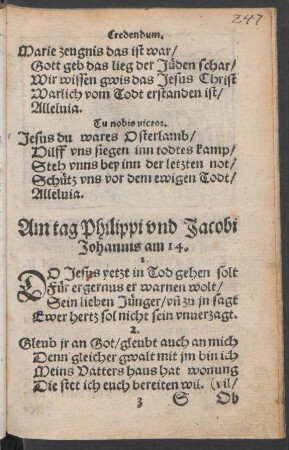 247
Credendum.
Marie zeugnis das ist war/
Gott geb das lieg der Jüden schar/
Wir wissen gwis das Jesus Christ
Warlich vom Todt erstanden ist/
Alleluia.
Tu nobis victor.
Jesus du wares Osterlamb/
Hilff vns siegen inn todtes kamp/
Steh vnns bey inn der letzten not/
Schütz vns vor dem ewigen Todt/
Alleluia.
Am tag Philippi vnd Jacobi
Johannis am 14.
1.
DO Jesus yetzt in Tod gehen solt
Für ergernus er warnen wolt/
Sein lieben Jünger/ vñ zu jn sagt
Ewer hertz sol nicht sein vnuerzagt.
2.
Gleub jr an Got/ gleubt auch an mich
Denn gleicher gwalt mit jm bin ich
Meins Vatters haus hat wonung
Die stet ich euch bereiten wil. (vil/
3 S Ob